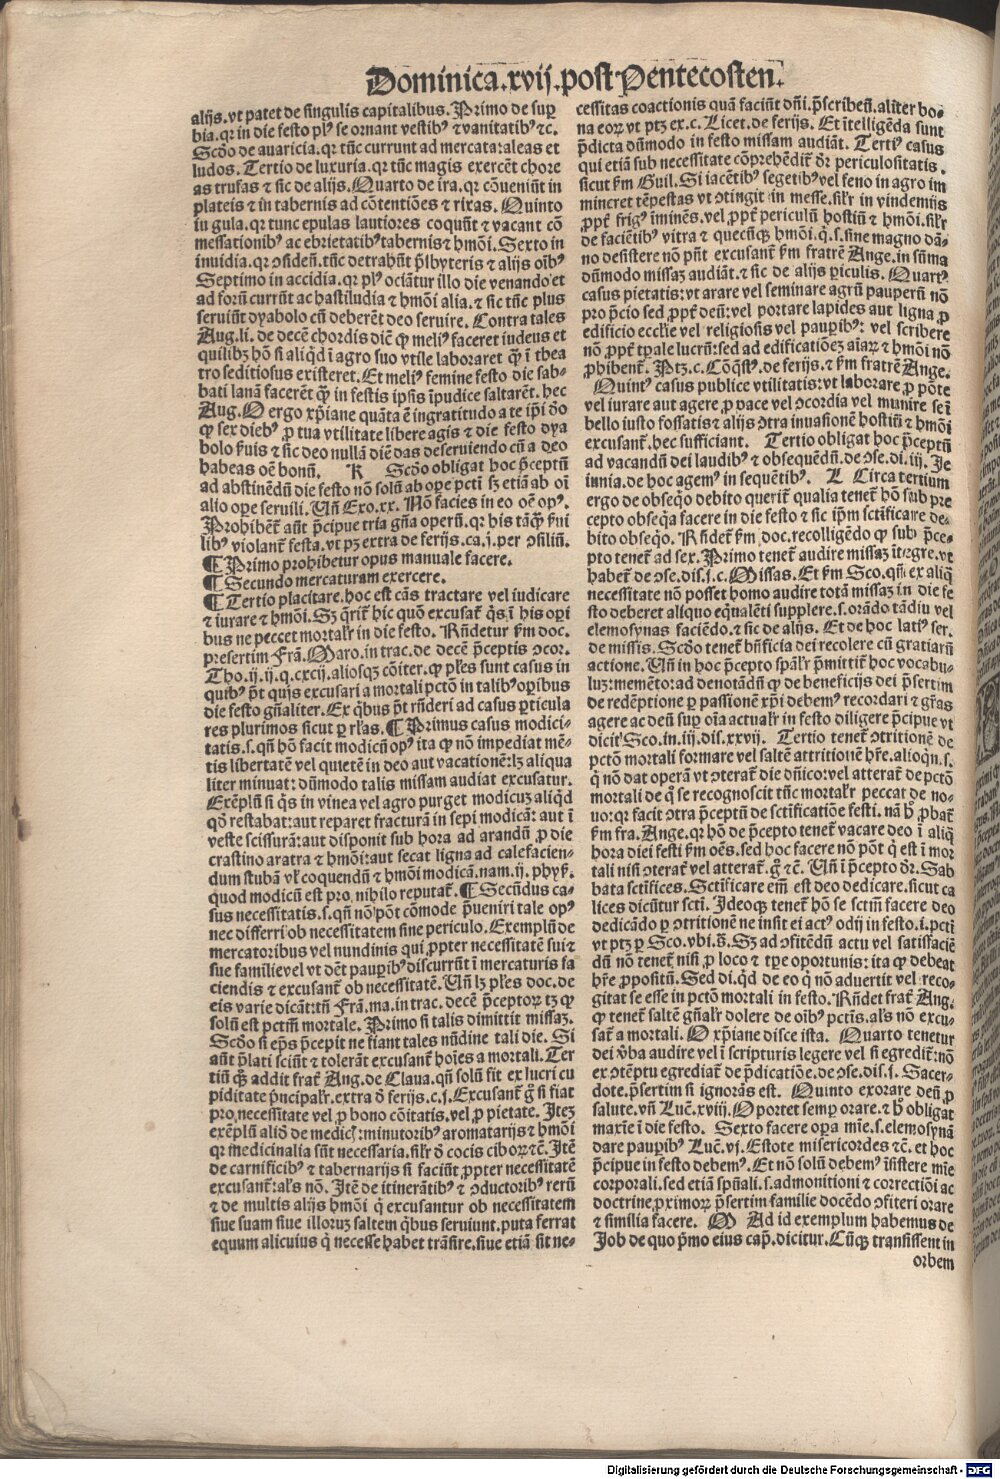 Dominica.xvij.post Pentecosten.
alijs.vt patet de singulis capitalibus. Primo de suꝑ
bia.qꝛ in die festo plꝰ se ornant vestibꝰ ⁊ vanitatibꝰ ⁊c.
Scďo de auaricia.qꝛ tūc currunt ad mercata:aleas et
ludos. Tertio de luxuria.qꝛ tūc magis exercēt chore
as trufas ⁊ sic de alijs. Quarto de ira.qꝛ cōueniūt in
plateis ⁊ in tabernis ad cōtentiōes ⁊ rixas. Quinto
in gula.qꝛ tunc epulas lautiores coquūt ⁊ vacant cō
messationibꝰ ac ebrietatibꝰ tabernis ⁊ hmōi. Sexto in
inuidia.qꝛ ꝯsidēn.tūc detrahūt p̄sbyteris ⁊ alijs oībꝰ
Septimo in accidia.qꝛ plꝰ ociātur illo die venando et
ad forū currūt ac hastiludia ⁊ hmōi alia.⁊ sic tūc plus
seruiūt dyabolo cū deberēt deo seruire. Contra tales
Aug.li. de decē chordis diē ꝙ meliꝰ faceret iudeus et
quilibꝫ hō si aliqd̄ ī agro suo vtile laboraret ꝙ̄ ī thea
tro seditiosus existeret. Et meliꝰ femine festo die sab-
bati lanā facerēt ꝙ̄ in festis ip̄sis īpudice saltarēt. hec
Aug. O ergo xp̄iane quāta ē ingratitudo a te ip̄i ďo
ꝙ sex diebꝰ ꝓ tua vtilitate libere agis ⁊ die festo dya
bolo ẜuis ⁊ sic deo nullā diē das deseruiendo cū a deo
habeas oē bonū. K Scďo obligat hoc p̄ceptū
ad abstinēdū die festo nō solū ab oꝑe pctī sꝫ etiā ab oī
alio oꝑe seruili. Vn̄ Exo.xx. Nō facies in eo oē opꝰ.
Prohibet̄ aūt p̄cipue tria gn̄a operū.qꝛ his tāꝙ̄ ẜui
libꝰ violant̄ festa.vt pꝫ extra de ferijs.ca.j.per ꝯsiliū.
¶ Primo prohibetur opus manuale facere.
¶ Secundo mercaturam exercere.
¶ Tertio placitare.hoc est cās tractare vel iudicare
⁊ iurare ⁊ hmōi. Sꝫ q̄rit̄ hic quō excusat̄ q̄s ī his oꝑi
bus ne peccet mortalr̄ in die festo. Rn̄detur ẜm doc.
presertim Frā. Maro.in trac.de decē p̄ceptis ꝯcor.
Tho.ij.ij.q.cxcij.aliosqꝫ cōiter.ꝙ ples sunt casus in
quibꝰ p̄t quis excusari a mortali pctō in talibꝰ oꝑibus
die festo gn̄aliter. Ex q̄bus p̄t rn̄deri ad casus ꝑticula
res plurimos sicut ꝑ rl̄as. ¶ Primus casus modici-
tatis.s.qn̄ hō facit modicū opꝰ ita ꝙ nō impediat mē-
tis libertatē vel quietē in deo aut vacationē:lꝫ aliqua
liter minuat: dūmodo talis missam audiat excusatur.
Exēplū si q̄s in vinea vel agro purget modicuꝫ aliqd̄
qd̄ restabat:aut reparet fracturā in sepi modicā: aut ī
veste scissurā:aut disponit sub hora ad arandū ꝓ die
crastino aratra ⁊ hmōi:aut secat ligna ad calefacien-
dum stubā vl̓ coquendū ⁊ hmōi modicā.nam.ij.phyẜ.
quod modicū est pro nihilo reputat̄. ¶ Secūdus ca-
sus necessitatis.s.qn̄ nō pōt cōmode p̄ueniri tale opꝰ
nec differri ob necessitatem sine periculo. Exemplū de
mercatoribus vel nundinis qui ꝓpter necessitatē sui ⁊
sue familie vel vt dēt pauꝑibꝰ discurrūt ī mercaturis fa
ciendis ⁊ excusant̄ ob necessitatē. Vn̄ lꝫ ples doc.de
eis varie dicāt:tn̄ Frā.ma.in trac.decē p̄ceptoꝝ tꝫ ꝙ
solū est pctm̄ mortale. Primo si talis dimittit missaꝫ.
Scďo si ep̄s p̄cepit ne fiant tales nūdine tali die. Si
aūt p̄lati sciūt ⁊ tolerāt excusant̄ hoīes a mortali. Ter
tiū ꝙ̄ addit frat̄ Ang.de Claua.qn̄ solū fit ex lucri cu
piditate p̄ncipalr̄.extra ď ferijs.c.j. Excusant̄ g̊ si fiat
pro necessitate vel ꝓ bono cōitatis.vel ꝓ pietate. Iteꝫ
exēplū aliď de medicꝭ:minutoribꝰ aromatarijs ⁊ hmōi
qꝛ medicinalia sūt necessaria.silr̄ ď cocis ciboꝝ ⁊c. Itē
de carnificibꝰ ⁊ tabernarijs si faciūt ꝓpter necessitatē
excusant̄:als̓ nō. Itē de itinerātibꝰ ⁊ ꝯductoribꝰ rerū
⁊ de multis alijs hmōi q̄ excusantur ob necessitatem
siue suam siue illoruꝫ saltem q̄bus seruiunt.puta ferrat
equum alicuius q̄ necesse habet trāsire.siue etiā sit ne-
cessitas coactionis quā faciūt dn̄i p̄scribēn.alit̄er bo-
na eoꝝ vt ptꝫ ex.c. Licet.de ferijs. Et ītelligēda sunt
p̄dicta dūmodo in festo missam audiāt. Tertiꝰ casus
qui etiā sub necessitate cōprehēdit̄ ďr periculositatis.
sicut ẜm Guil. Si iacētibꝰ segetibꝰ vel feno in agro im
mincret tēpestas vt ꝯtingit in messe.silr̄ in vindemijs
ꝓpt̄ frigꝰ iminēs.vel ꝓpt̄ periculū hostiū ⁊ hmōi.silr̄
de faciētibꝰ vitra ⁊ quecūqꝫ hmōi.q̄.s.sine magno dā-
no desistere nō pn̄t excusant̄ ẜm fratrē Ange.in sūma
dūmodo missaꝫ audiāt.⁊ sic de alijs ꝑiculis. Quartꝰ
casus pietatis:vt arare vel seminare agrū pauperū nō
pro p̄cio sed ꝓpt̄ deū:vel portare lapides aut ligna ꝓ
edificio eccl̄ie vel religiosis vel pauꝑibꝰ: vel scribere
nō ꝓpt̄ tꝑale lucrū:sed ad edificatiōeꝫ aīaꝝ ⁊ hmōi nō
ꝓhibent̄. Ptꝫ.c. Cōq̄stꝰ.de ferijs.⁊ ẜm fratrē Ange.
Quintꝰ casus publice vtilitatis:vt laborare ꝓ pōte
vel iurare aut agere ꝓ pace vel ꝯcordia vel munire se ī
bello iusto fossatis ⁊ alijs ꝯtra inuasionē hostiū ⁊ hmōi
excusant̄.hec sufficiant. Tertio obligat hoc p̄ceptū
ad vacandū dei laudibꝰ ⁊ obsequēdū.de ꝯse.di.iij. Je
iunia.de hoc agemꝰ in sequētibꝰ. L Circa tertium
ergo de obseq̄o debito querit̄ qualia tenet̄ hō sub pre
cepto obseq̄a facere in die festo ⁊ sic ip̄m sctificare de-
bito obseq̄o. Rn̄det̄ ẜm doc.recolligēdo ꝙ sub p̄ce-
pto tenet̄ ad sex. Primo tenet̄ audire missaꝫ ītegre.vt
habet̄ de ꝯse.dis.j.c. Missas. Et ẜm Sco.qn̄ ex aliq̄
necessitate nō posset homo audire totā missaꝫ in die fe
sto deberet aliquo eq̄ualēti supplere.s.orādo tādiu vel
elemosynas faciēdo.⁊ sic de alijs. Et de hoc latiꝰ ser.
de missis. Scďo tenet̄ bn̄ficia dei recolere cū gratiarū
actione. Vn̄ in hoc p̄cepto spālr̄ p̄mittit̄ hoc vocabu-
luꝫ:memēto:ad denotādū ꝙ de beneficijs dei p̄sertim
de redēptione ꝑ passionē xp̄i debemꝰ recordari ⁊ gr̄as
agere ac deū suꝑ oīa actualr̄ in festo diligere p̄cipue vt
dicit Sco.in.iij.dis.xxvij. Tertio tenet̄ ꝯtritionē de
pctō mortali formare vel saltē attritionē hr̄e.alioq̄n.s.
q̄ nō dat operā vt ꝯterat̄ die dn̄ico:vel atterat̄ de pctō
mortali de q̊ se recognoscit tūc mortalr̄ peccat de no-
uo:qꝛ facit ꝯtra p̄ceptū de sctificatiōe festi. nā h̊ ꝓbat̄
ẜm fra. Ange.qꝛ hō de p̄cepto tenet̄ vacare deo ī aliq̄
hora diei festi ẜm oēs.sed hoc facere nō pōt q̄ est ī mor
tali nisi ꝯterat̄ vel atterat̄.g̊ ⁊c. Vn̄ ī p̄cepto ďr. Sab
bata sctifices. Sctificare em̄ est deo dedicare.sicut ca
lices dicūtur scti. Ideoqꝫ tenet̄ hō se sctm̄ facere deo
dedicādo ꝑ ꝯtritionē ne insit ei actꝰ odij in festo.i.pcti
vt ptꝫ ꝑ Sco.vbi.s̄. Sꝫ ad ꝯfitēdū actu vel satisfaciē
dū nō tenet̄ nisi ꝓ loco ⁊ tꝑe oportunis:ita ꝙ debeat
hr̄e ꝓpositū. Sed di.qd̄ de eo q̄ nō aduertit vel reco-
gitat se esse in pctō mortali in festo. Rn̄det frat̄ Ang.
ꝙ tenet̄ saltē gn̄alr̄ dolere de oībꝰ pctis.als̓ nō excu-
sat̄ a mortali. O xp̄iane disce ista. Quarto tenetur
dei v̓ba audire vel ī scripturis legere vel si egredit̄:nō
ex ꝯtēptu egrediat̄ de p̄dicatiōe.de ꝯse.dis.j. Sacer-
dote.p̄sertim si ignorās est. Quinto exorare deū ꝓ
salute.vn̄ Luc̄.xviij. Oportet semꝑ orare.⁊ h̊ obligat
maxīe ī die festo. Sexto facere oꝑa mīe.s.elemosynā
dare pauꝑibꝰ Luc̄.vj. Estote misericordes ⁊c. et hoc
p̄cipue in festo debemꝰ. Et nō solū debemꝰ īsistere mīe
corporali.sed etiā spūali.s.admonitioni ⁊ correctiōi ac
doctrine ꝓximoꝝ p̄sertim familie docēdo ꝯfiteri orare
⁊ similia facere. M Ad id exemplum habemus de
Job de quo p̄mo eius cap̄.dicitur. Cūqꝫ transissent in
orbem
Digitalisierung gefördert durch die Deutsche Forschungsgemeinschaft - DFG